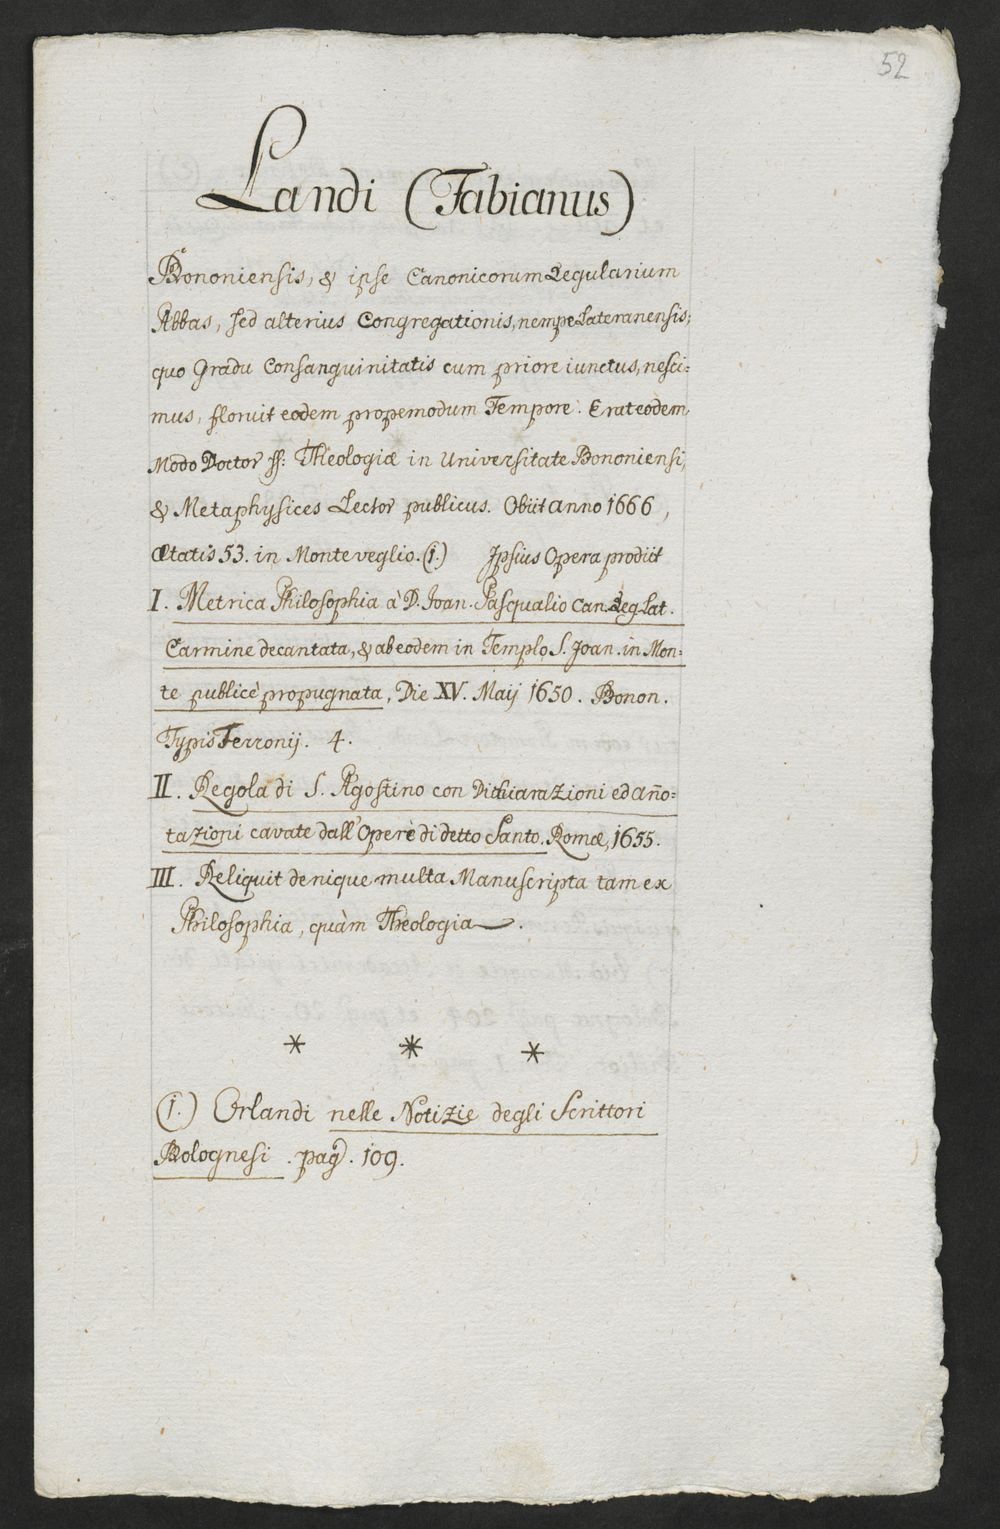 52
Landi (Fabianus)
Bononiensis, & ipse Canonicorum Regularium
Abbas, sed alterius Congregationis, nempe Lateranensis;
quo Gradu Consanguinitatis cum priore iunctus, nesci=
mus, floruit eodem propemodum Tempore. Erat eodem
Modo Doctor ss: Theologiæ in Universitate Bononiensi,
& Metaphysices Lector publicus. Obiit anno 1666,
ætatis 53. in Monteveglio. (1.) Ipsius Opera prodiit
I. Metrica Philosophia à D. Joan. Pasqualio Can. Reg. Lat.
Carmine decantata, & ab eodem in Templo S. Joan. in Mon=
te publicè propugnata, Die XV. Maij 1650. Bonon.
Typis Ferronij. 4.
II. Regola di S. Agostino con Dichiarazioni ed añо=
tazioni cavate dall'Opere di detto Santo. Romæ, 1655.
III. Reliquit denique multa Manuscripta tam ex
Philosophia, quàm Theologia.
* * *
(1.) Orlandi nelle Notizie degli Scrittori
Bolognesi. pag. 109.